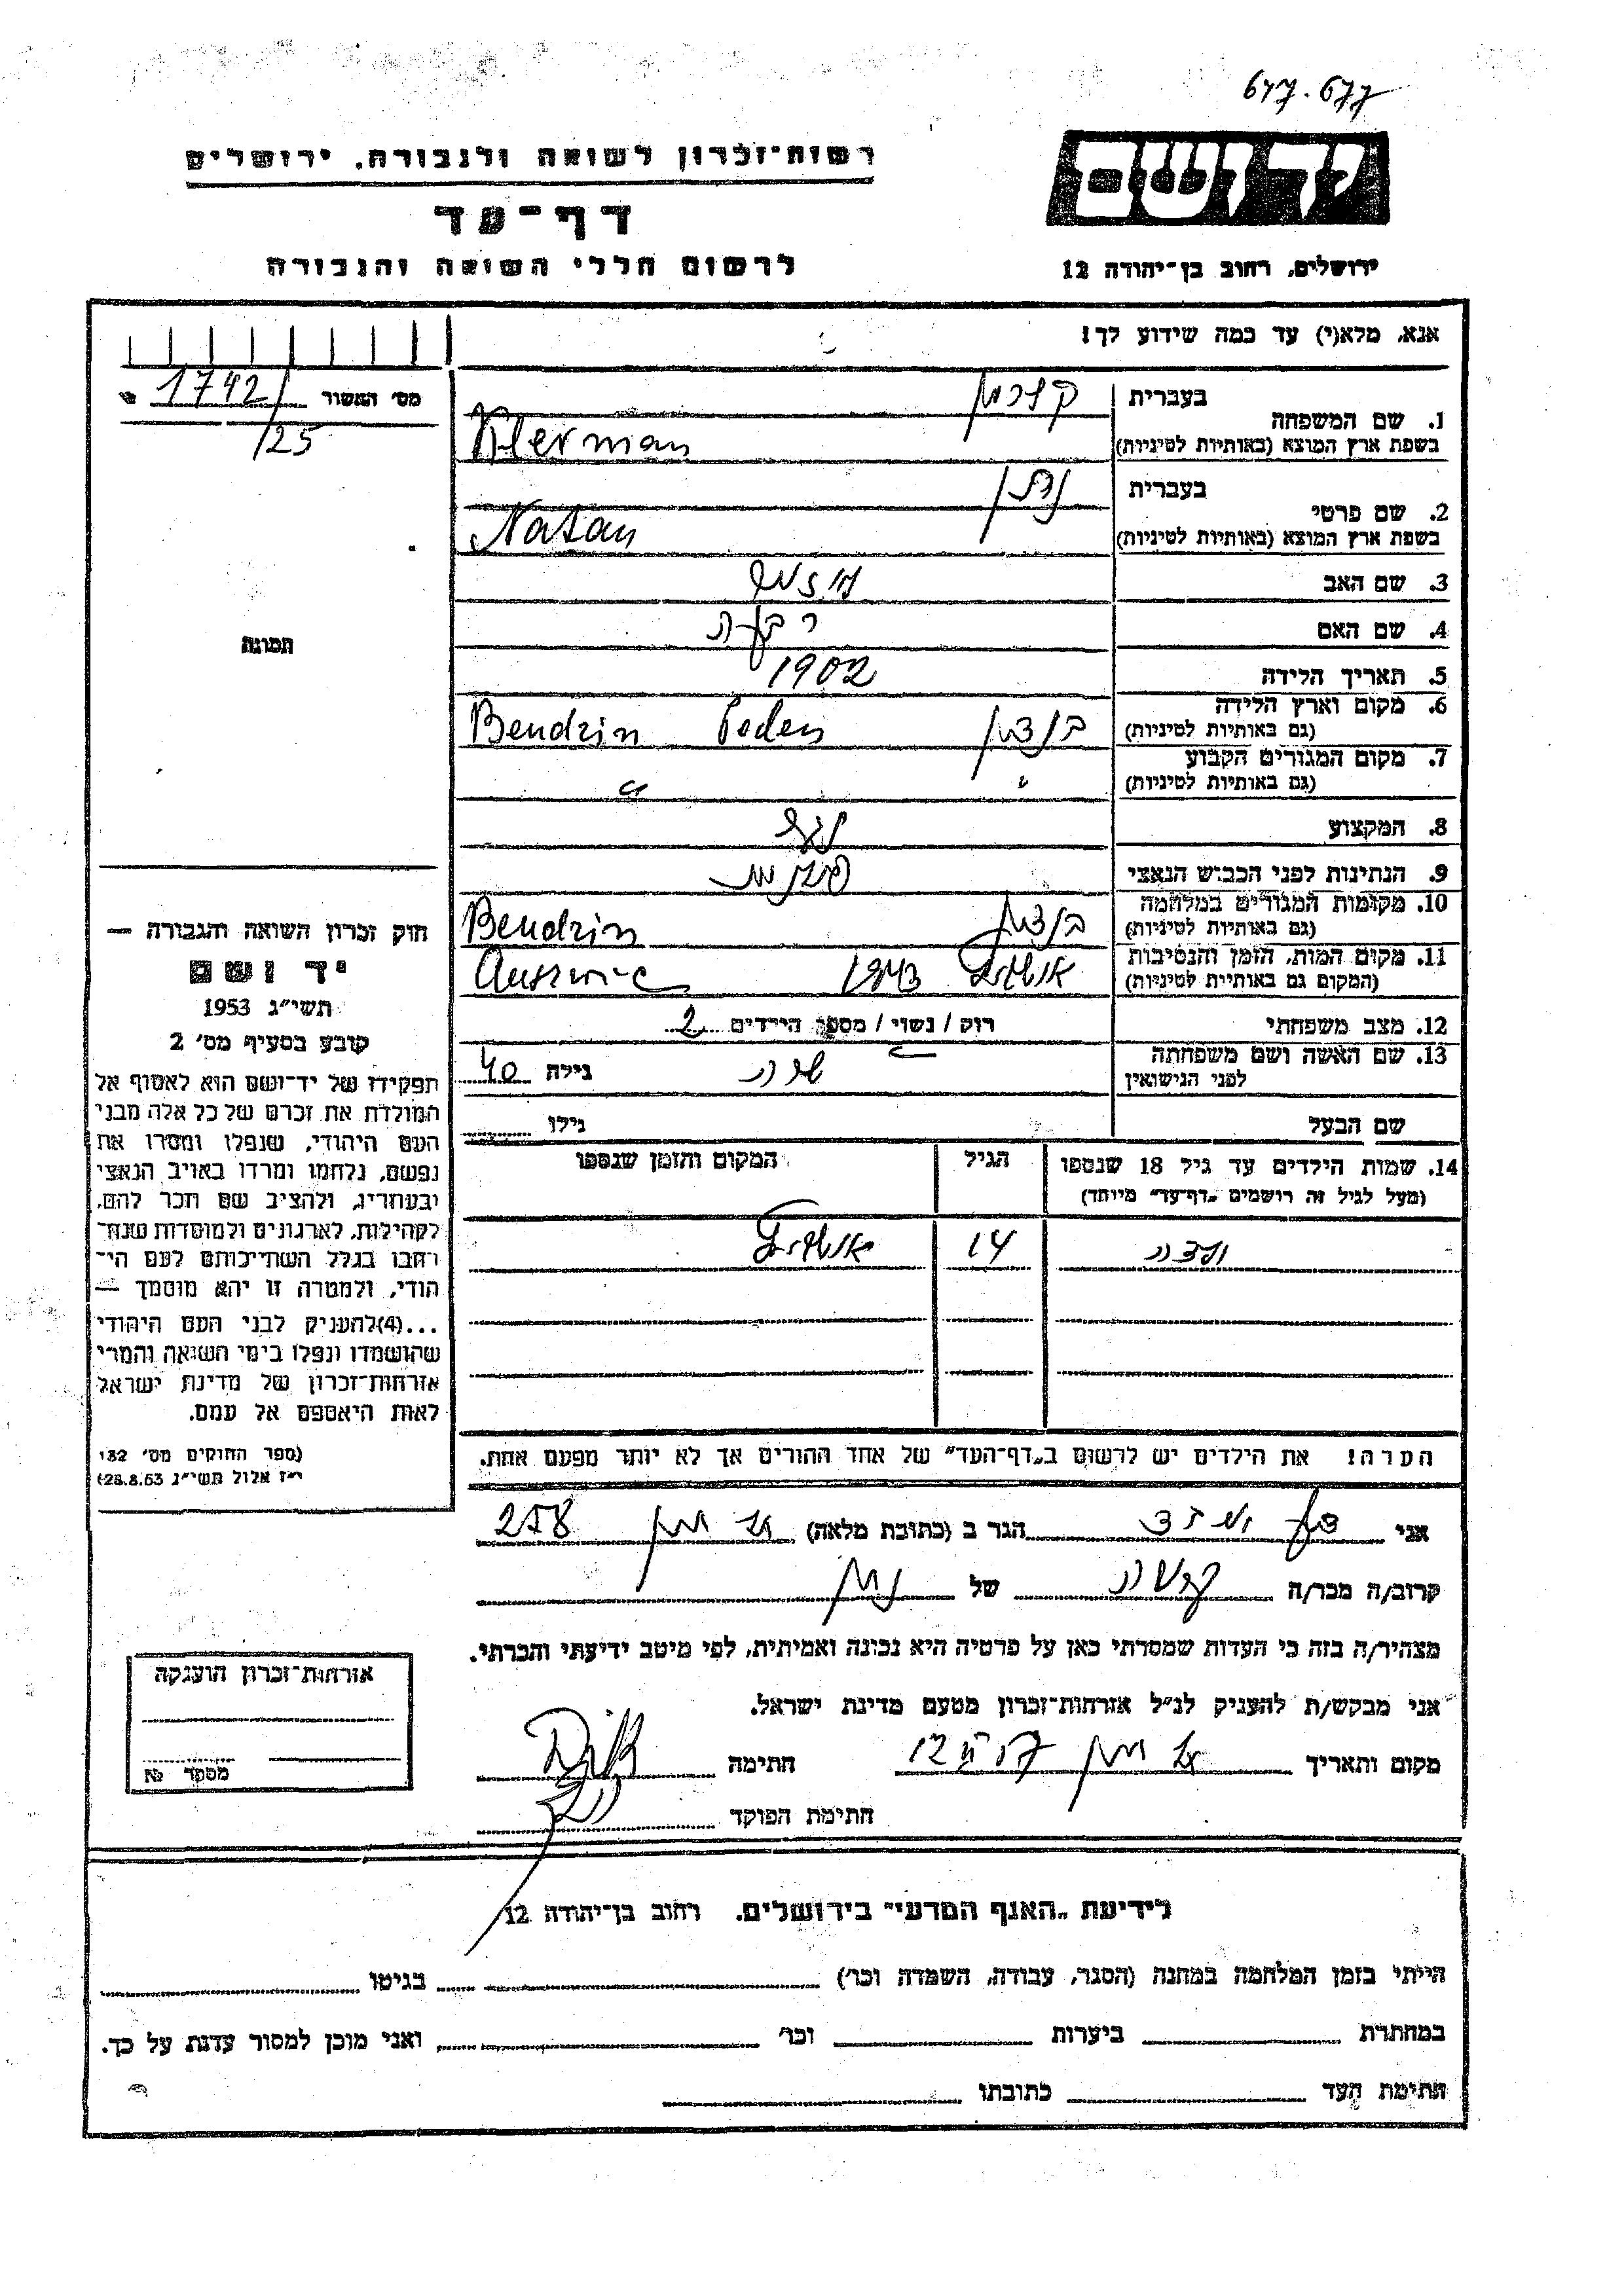 677.677
יד ושם
רשות-זכרון לשואה ולגבורה, ירושלים
דף-עד
לרשום חללי השואה והגבורה
ירושלים, רחוב בן-יהודה 12
אנא, מלא(י) עד כמה שידוע לך!
מס' האשור 1742/
125
1. שם המשפחה
בעברית
בשפת ארץ המוצא (באותיות לטיניות) Klerman
2. שם פרטי
בעברית נתן
בשפת ארץ המוצא (באותיות לטיניות) Natan
3. שם האב
4. שם האם רבקה
5. תאריך הלידה 1902
6. מקום וארץ הלידה
(גם באותיות לטיניות) בנדצין Bendzin
7. מקום המגורים הקבוע
(גם באותיות לטיניות) " "
8. המקצוע
9. הנתינות לפני הכבוש הנאצי פולנית
10. מקומות המגורים במלחמה
(גם באותיות לטיניות) בנדצין Bendzin
11. מקום המות, הזמן והנסיבות
(המקום גם באותיות לטיניות) אושוויץ 1943
12. מצב משפחתי רוק / נשוי / מספר הילדים 2
13. שם האשה ושם משפחתה
לפני הנישואין שרה גילה 40
שם הבעל גילו
14. שמות הילדים עד גיל 18 שנספו
(מעל לגיל זה רושמים "דף-עד" מיוחד)
הגיל
המקום והזמן שנספו
14 אושוויץ
הערה! את הילדים יש לרשום ב"דף-העד" של אחד ההורים אך לא יותר מפעם אחת.
תמונה
חוק זכרון השואה והגבורה —
יד ושם
תשי"ג 1953
קובע בסעיף מס' 2
תפקידו של יד-ושם הוא לאסוף אל
המולדת את זכרם של כל אלה מבני
העם היהודי, שנפלו ומסרו את
נפשם, נלחמו ומרדו באויב הנאצי
ובעוזריו, ולהציב שם וזכר להם,
לקהילות, לארגונים ולמוסדות שנח-
רבו בגלל השתייכותם לעם הי-
הודי, ולמטרה זו יהא מוסמך —
...(4)להעניק לבני העם היהודי
שהושמדו ונפלו בימי השואה והמרי
אזרחות-זכרון של מדינת ישראל
לאות היאספם אל עמם.
(ספר החוקים מס' 132
י"ז אלול תשי"ג 28.8.53)
אני הגר ב (כתובת מלאה) 258
קרוב/ה מכר/ה של נתן
מצהיר/ה בזה כי העדות שמסרתי כאן על פרטיה היא נכונה ואמיתית, לפי מיטב ידיעתי והכרתי.
אני מבקש/ת להעניק לנ"ל אזרחות-זכרון מטעם מדינת ישראל.
מקום ותאריך חתימה
חתימת הפוקד
אזרחות-זכרון הוענקה
מספר №
לידיעת "האגף המדעי" בירושלים. רחוב בן-יהודה 12
הייתי בזמן המלחמה במחנה (הסגר, עבודה, השמדה וכו') בגיטו
במחתרת ביערות וכו' ואני מוכן למסור עדות על כך.
חתימת העד כתובתו